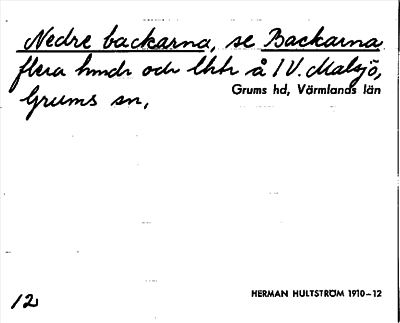 Nedre backarna, se Backarna
flera hmdr och lhtr å 1 V. Malsjö,
Grums hd, Värmlands län
Grums sn,
12
HERMAN HULTSTRÖM 1910-12